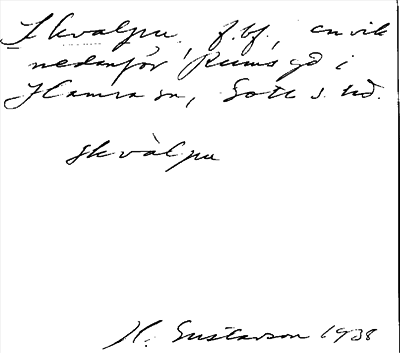 Skvalpu, f.bf., en vik
nedanför Rums gd i
Hamra sn, Gotl. s. hd.
skvàlpu
H. Gustavson 1938